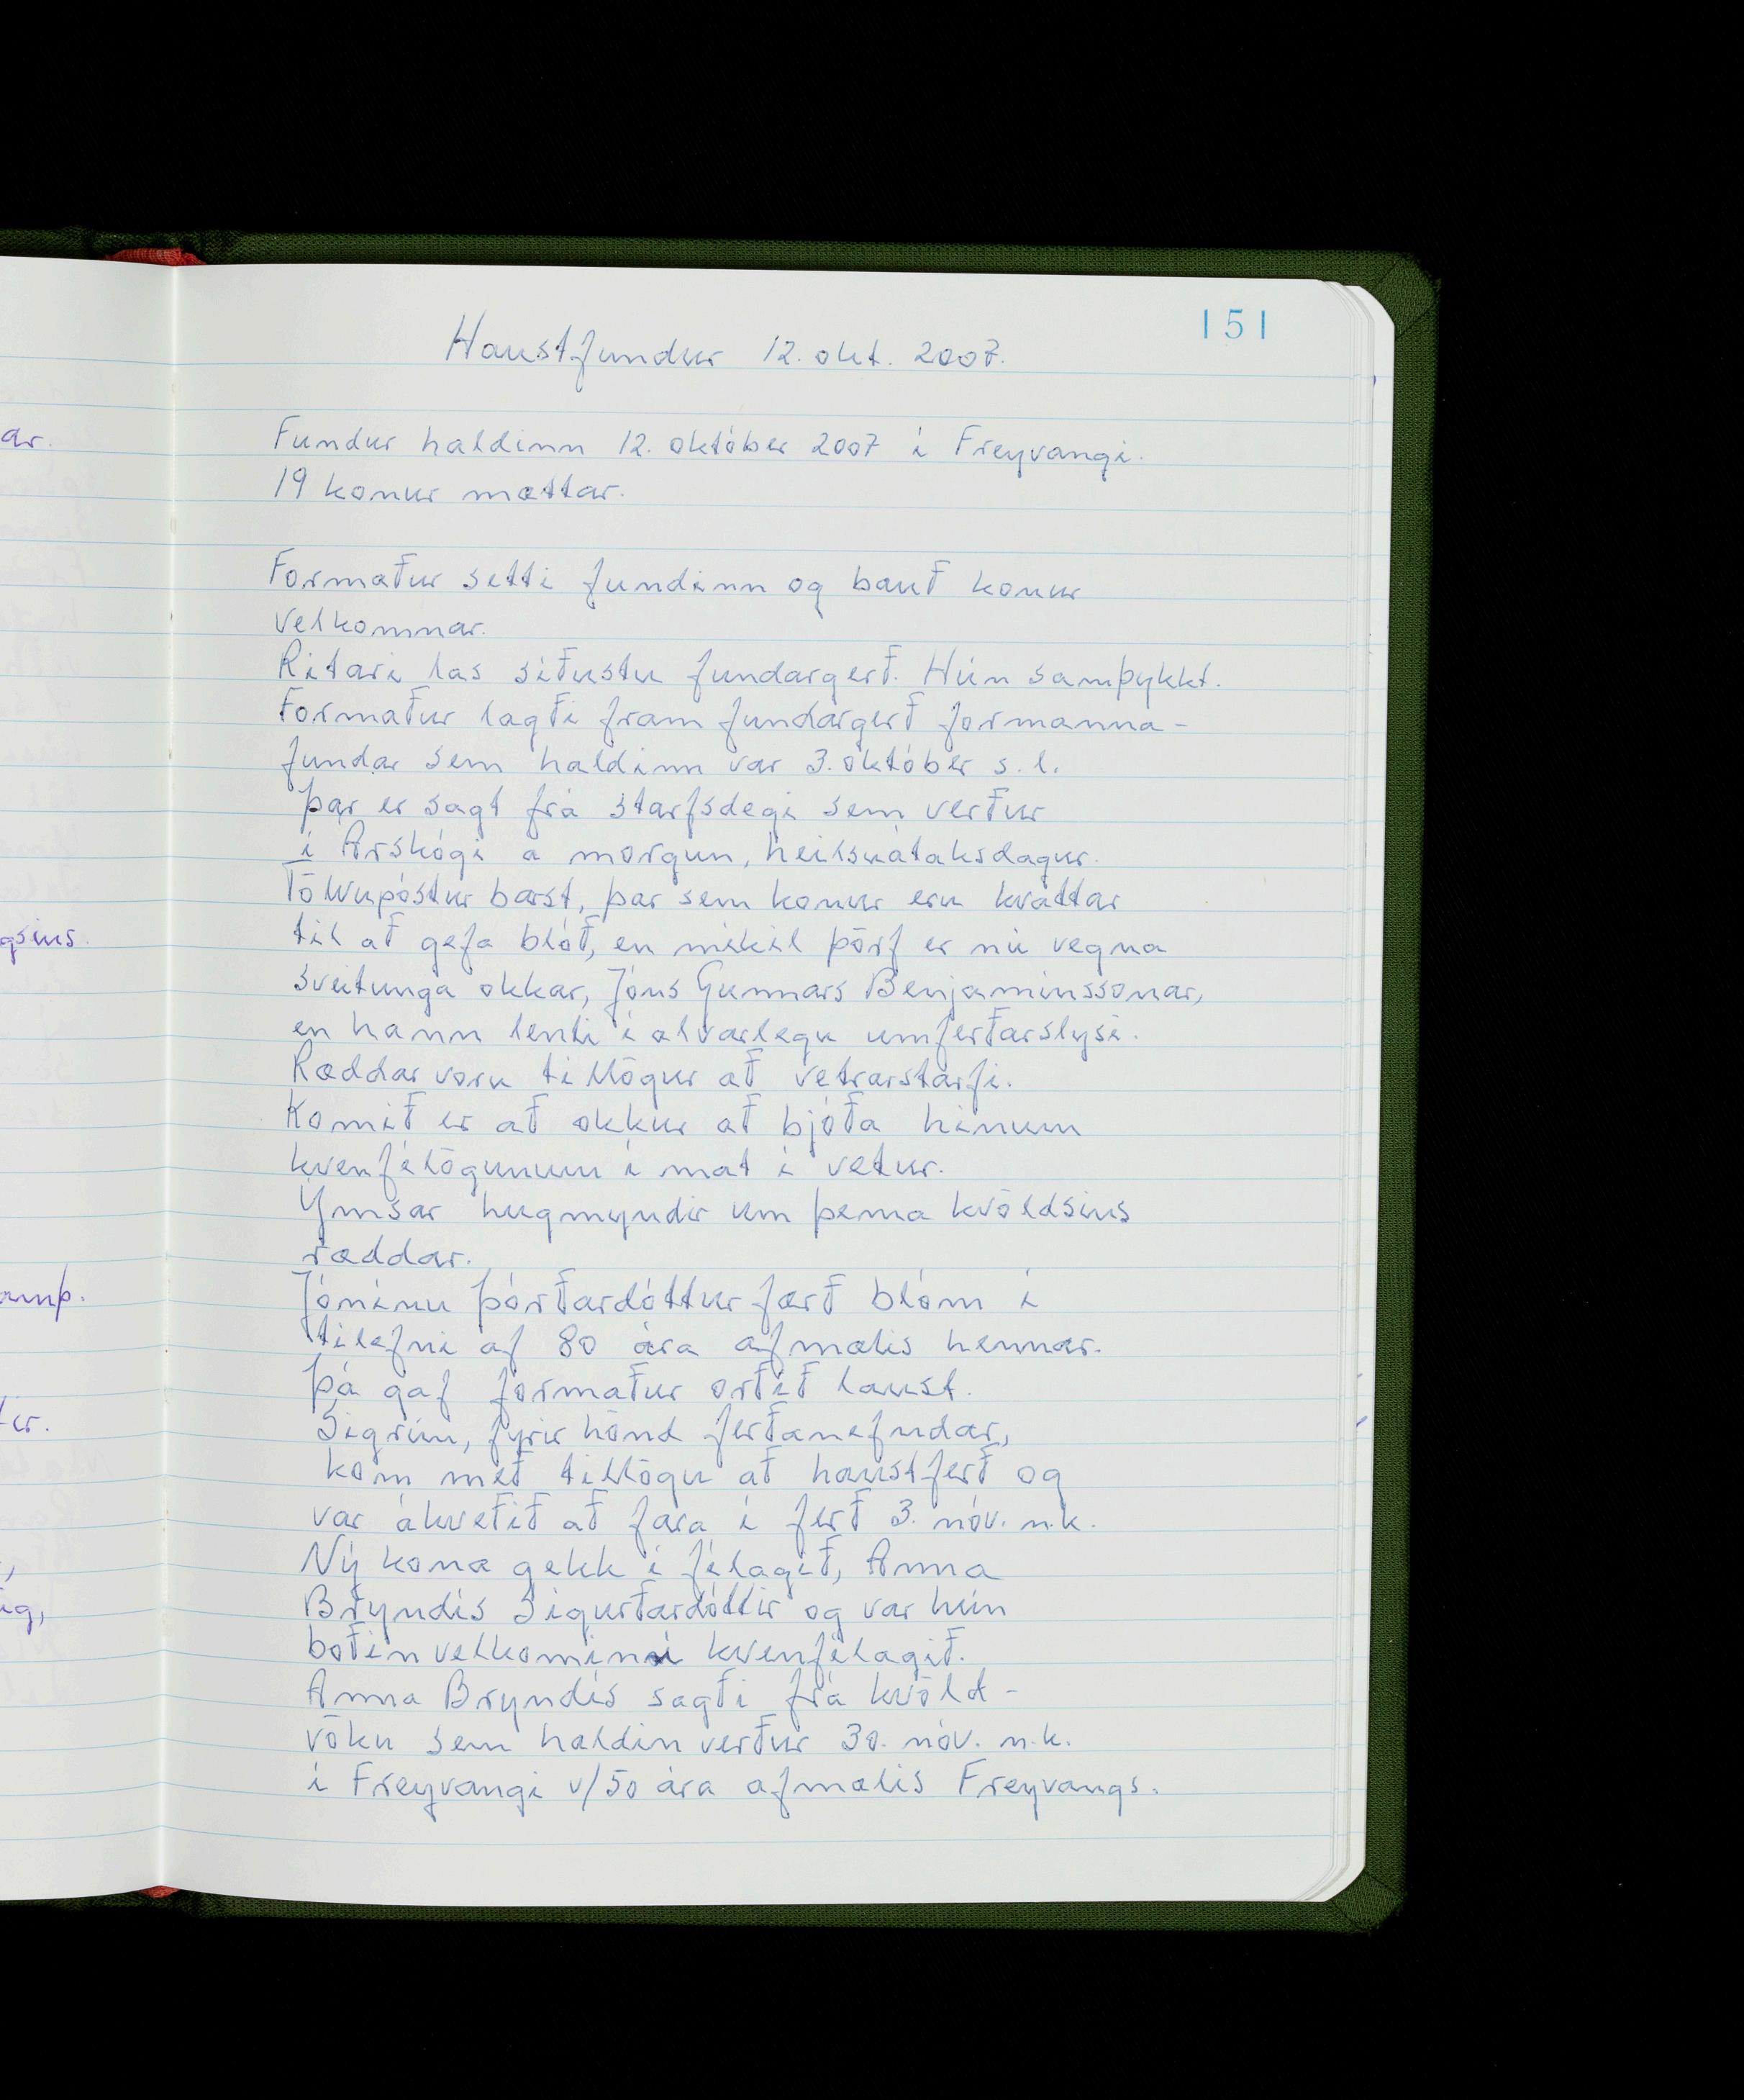 151
Haustfundur 12. okt. 2007.
Fundur haldinn 12. október 2007 í Freyvangi.
19 konur mættar.
Formaður setti fundinn og bauð konur
velkomnar.
Ritari las síðustu fundargerð. Hún samþykkt.
Formaður lagði fram fundargerð formanna-
fundar sem haldinn var 3. október s.l.
Þar er sagt frá starfsdegi sem verður
í Árskógi á morgun, heilsuátaksdagur.
Tölvupóstur barst, þar sem konur eru kvattar
til að gefa blóð, en mikil þörf er nú vegna
sveitunga okkar, Jóns Gunnars Benjamínssonar,
en hann lenti í alvarlegu umferðarslysi.
Ræddar voru tillögur að vetrarstarfi.
Komið er að okkur að bjóða hinum
kvenfélögunum í mat í vetur.
Ýmsar hugmyndir um þema kvöldsins
ræddar.
Jónínu Þórðardóttur fært blóm í
tilefni af 80 ára afmælis hennar.
Þá gaf formaður orðið laust.
Sigrún, fyrir hönd ferðanefndar,
kom með tillögu að haustferð og
var ákveðið að fara í ferð 3. nóv. n.k.
Ný kona gekk í félagið, Anna
Bryndís Sigurðardóttir og var hún
boðin velkomin í kvenfélagið.
Anna Bryndís sagði frá kvöld-
vöku sem haldin verður 30. nóv. n.k.
í Freyvangi v/50 ára afmælis Freyvangs.
ar.
gsins.
amp.
ir.
ig,